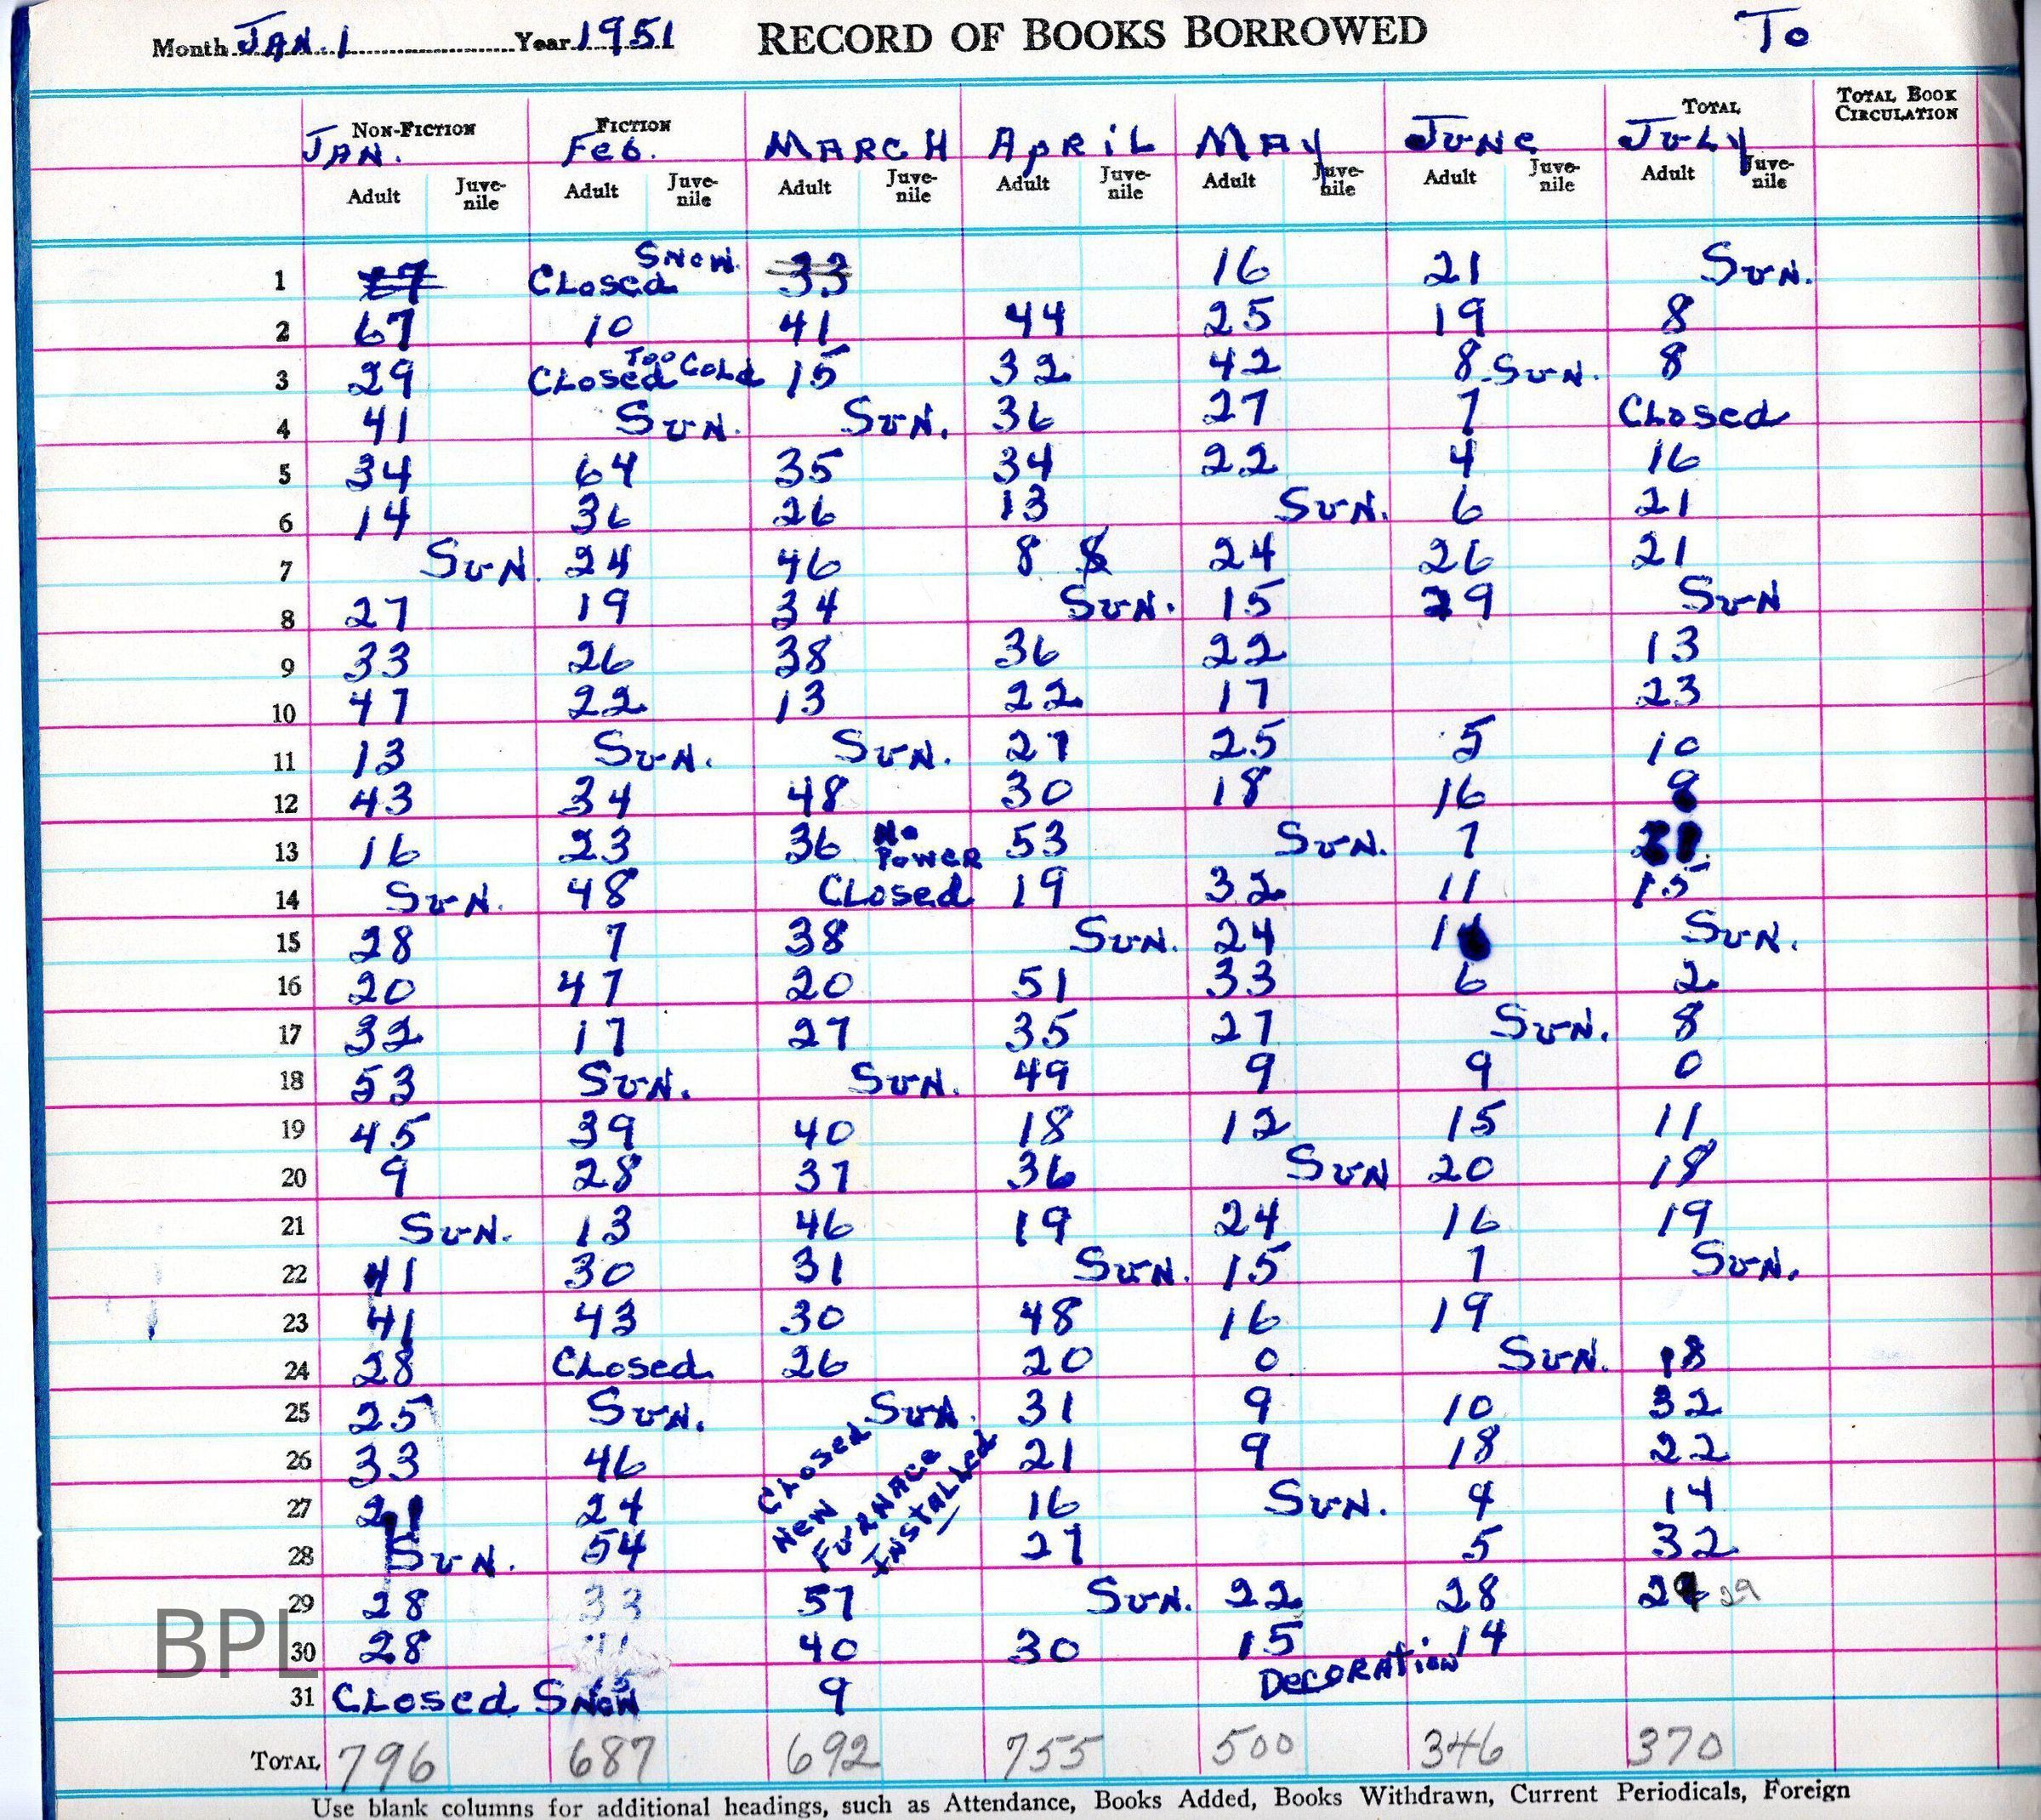 Month JAN. 1 Year 1951 RECORD OF BOOKS BORROWED To
NON-FICTION FICTION TOTAL TOTAL BOOK CIRCULATION
JAN. Feb. MARCH APRIL MAY JUNE JULY
Adult Juve-nile Adult Juve-nile Adult Juve-nile Adult Juve-nile Adult Juve-nile Adult Juve-nile Adult Juve-nile
1 Closed Snow. 33 16 21 Sun.
2 67 10 41 44 25 19 8
3 29 Closed Too Cold 15 32 42 8 Sun. 8
4 41 Sun. Sun. 36 27 7 Closed
5 34 64 35 34 22 4 16
6 14 36 26 13 Sun. 6 21
7 Sun. 24 46 8 8 24 26 21
8 27 19 34 Sun. 15 29 Sun
9 33 26 38 36 22 13
10 47 22 13 22 17 23
11 13 Sun. Sun. 27 25 5 10
12 43 34 48 30 18 16
13 16 23 36 No Power 53 Sun. 7
14 Sun. 48 Closed 19 32 11 15
15 28 7 38 Sun. 24 Sun.
16 20 47 20 51 33 6 2
17 32 17 27 35 27 Sun. 8
18 53 Sun. Sun. 49 9 9 0
19 45 39 40 18 12 15 11
20 9 28 37 36 Sun 20 18
21 Sun. 13 46 19 24 16 19
22 41 30 31 Sun. 15 7 Sun.
23 41 43 30 48 16 19
24 28 Closed. 26 20 0 Sun. 18
25 25 Sun. Sun. 31 9 10 32
26 33 46 Closed 21 9 18 22
27 24 New Furnace 16 Sun. 4 14
28 Sun. 54 Installed 27 5 32
29 28 33 57 Sun. 22 28 29
30 28 40 30 15 14
31 Closed Snow 9 Decoration
TOTAL 796 687 692 755 500 346 370
Use blank columns for additional headings, such as Attendance, Books Added, Books Withdrawn, Current Periodicals, Foreign
BPL